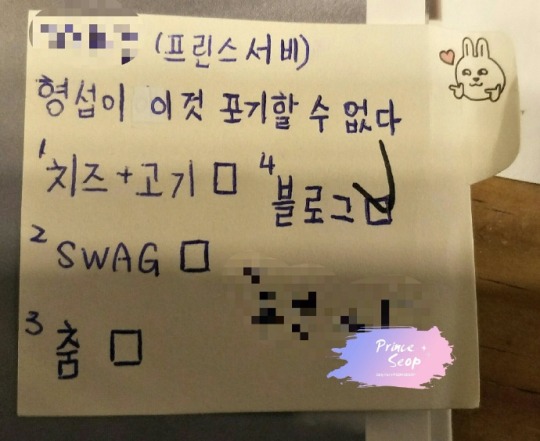 (프린스서비)
형섭이 이것 포기할 수 없다
1 치즈+고기 □
4 블로그 □
2 SWAG □
3 춤 □
Prince
Seop